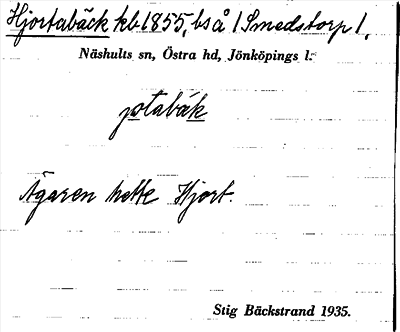 Hjortabäck kb 1855, bs å 1 Smedstorp 1,
Näshults sn, Östra hd, Jönköpings l:
Ägaren hette Hjort.
Stig Bäckstrand 1935.